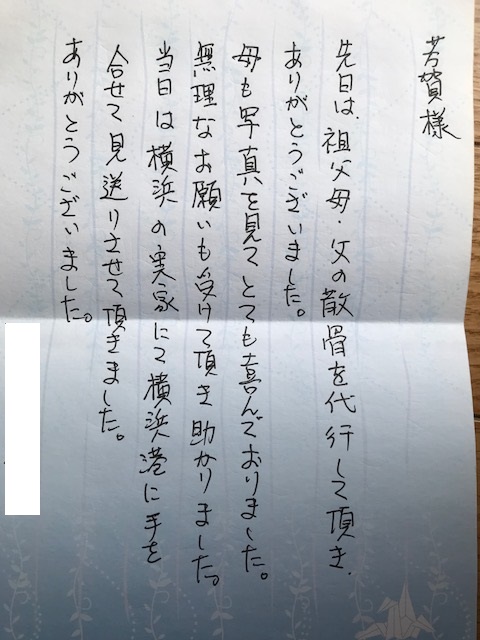 芳賀様
先日は、祖父母・父の散骨を代行して頂き、
ありがとうございました。
母も写真を見てとても喜んでおりました。
無理なお願いも受けて頂き助かりました。
当日は横浜の実家にて横浜港に手を
合せて見送りさせて頂きました。
ありがとうございました。